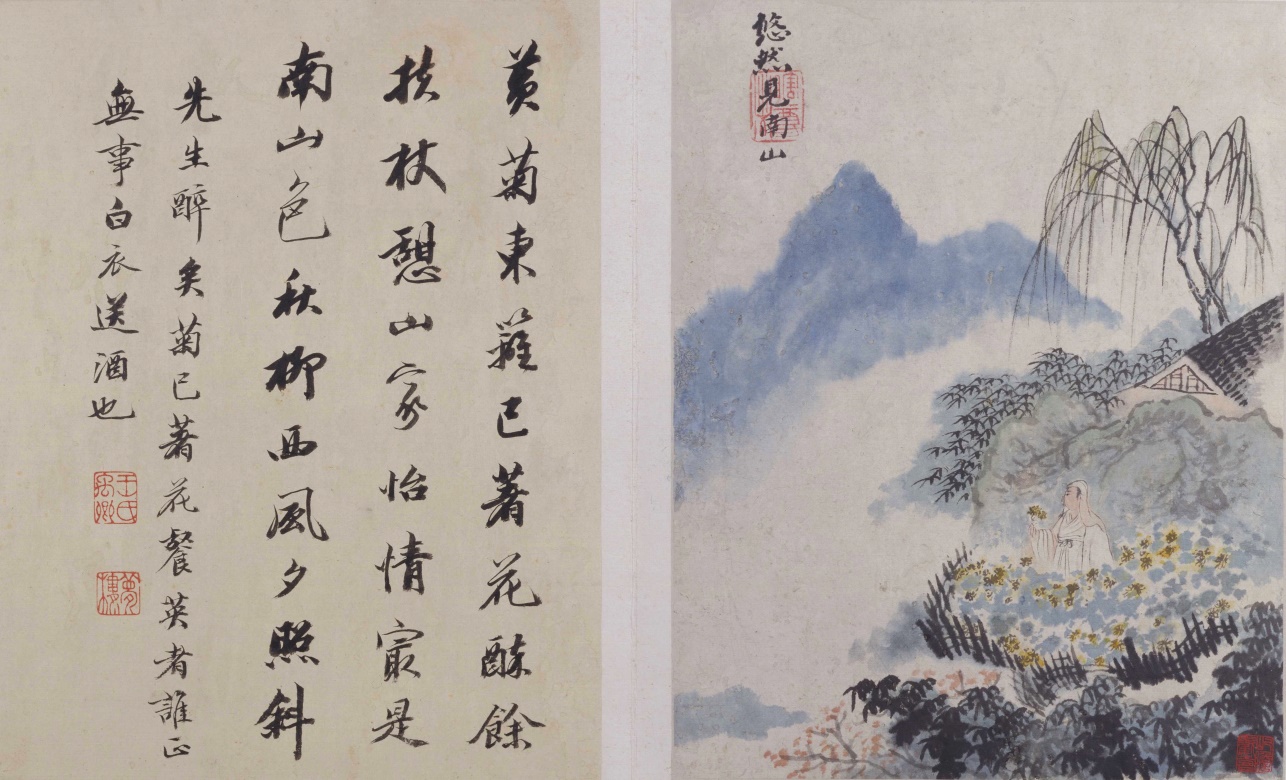 悠然見南山
黃菊東籬已著花餘
扶杖憩山家怡情㝡是
南山色秋柳西風夕照斜
先生醉矣菊已著花餐英者誰正
無事白衣送酒也
王氏禹卿
夢樓